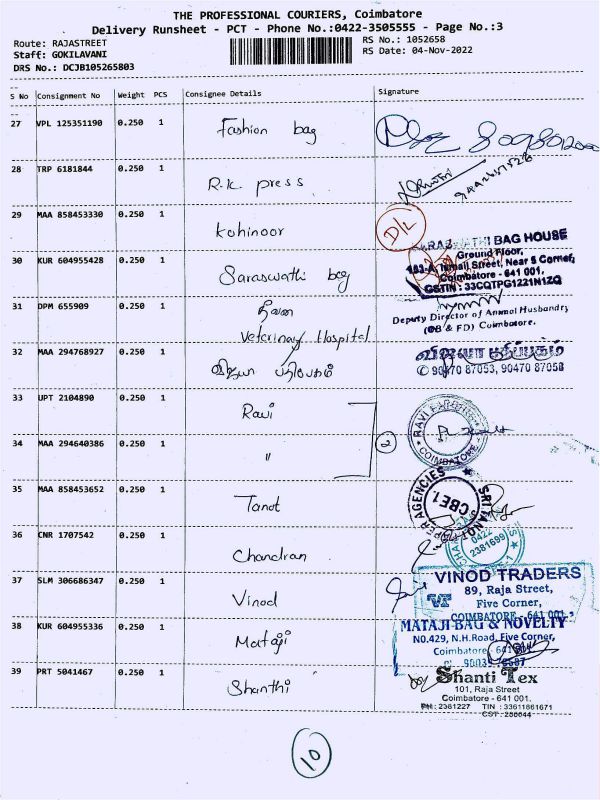 THE PROFESSIONAL COURIERS, Coimbatore
Delivery Runsheet - PCT - Phone No.:0422-3505555 - Page No.:3
Route: RAJASTREET
RS No.: 1052658
Staff: GOKILAVANI
RS Date: 04-Nov-2022
DRS No.: DCJB105265803
S No Consignment No Weight PCS Consignee Details Signature
27 VPL 125351190 0.250 1 Fashion bag
28 TRP 6181844 0.250 1 R.K. press
29 MAA 858453330 0.250 1 Kohinoor D/L
30 KUR 604955428 0.250 1 Saraswathi bag
BAG HOUSE
Ground Floor,
153-A, Ismail Street, Near 5 Corner,
Coimbatore - 641 001.
GSTIN : 33CQTPG1221N1ZQ
31 DPM 655909 0.250 1
Veterinary Hospital
Deputy Director of Animal Husbandry
(OB & FD) Coimbatore.
32 MAA 294768927 0.250 1 விஜயா பதிப்பகம்
விஜயா பதிப்பகம்
✆ 90470 87053, 90470 87058
33 UPT 2104890 0.250 1 Ravi
RAVI
COIMBATORE
34 MAA 294640386 0.250 1 " 2
35 MAA 858453652 0.250 1 Tanot
SRI TANOT PAPER AGENCIES
CBE 1
36 CNR 1707542 0.250 1 Chandran
0422
2381699
37 SLM 306686347 0.250 1 Vinod
VINOD TRADERS
VT
89, Raja Street,
Five Corner,
COIMBATORE - 641 001.
38 KUR 604955336 0.250 1 Mataji
MATAJI BAG & NOVELTY
NO.429, N.H.Road, Five Corner,
Coimbatore
39 PRT 5041467 0.250 1 Shanthi
Shanti Tex
101, Raja Street
Coimbatore - 641 001.
PH : 2381227 TIN : 33611861671
CST : 256044
10